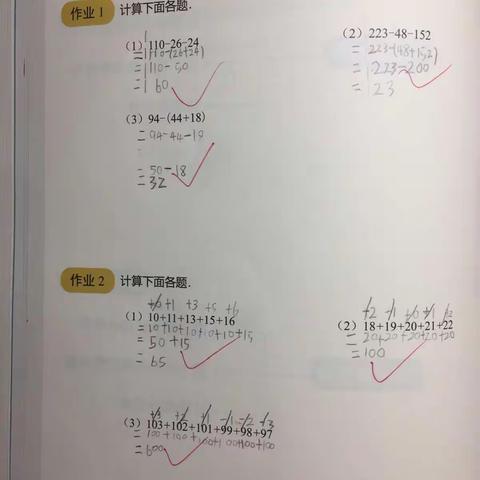 作业 1 计算下面各题.
(1) 110-26-24
=110-(26+24)
=110-50
=60
(2) 223-48-152
=223-(48+152)
=223-200
=23
(3) 94-(44+18)
=94-44-18
=50-18
=32
作业 2 计算下面各题.
+0 +1 +3 +5 +6
(1) 10+11+13+15+16
=10+10+10+10+10+15
=50+15
=65
-2 -1 +0 +1 +2
(2) 18+19+20+21+22
=20+20+20+20+20
=100
+3 +2 +1 -1 -2 -3
(3) 103+102+101+99+98+97
=100+100+100+100+100+100
=600